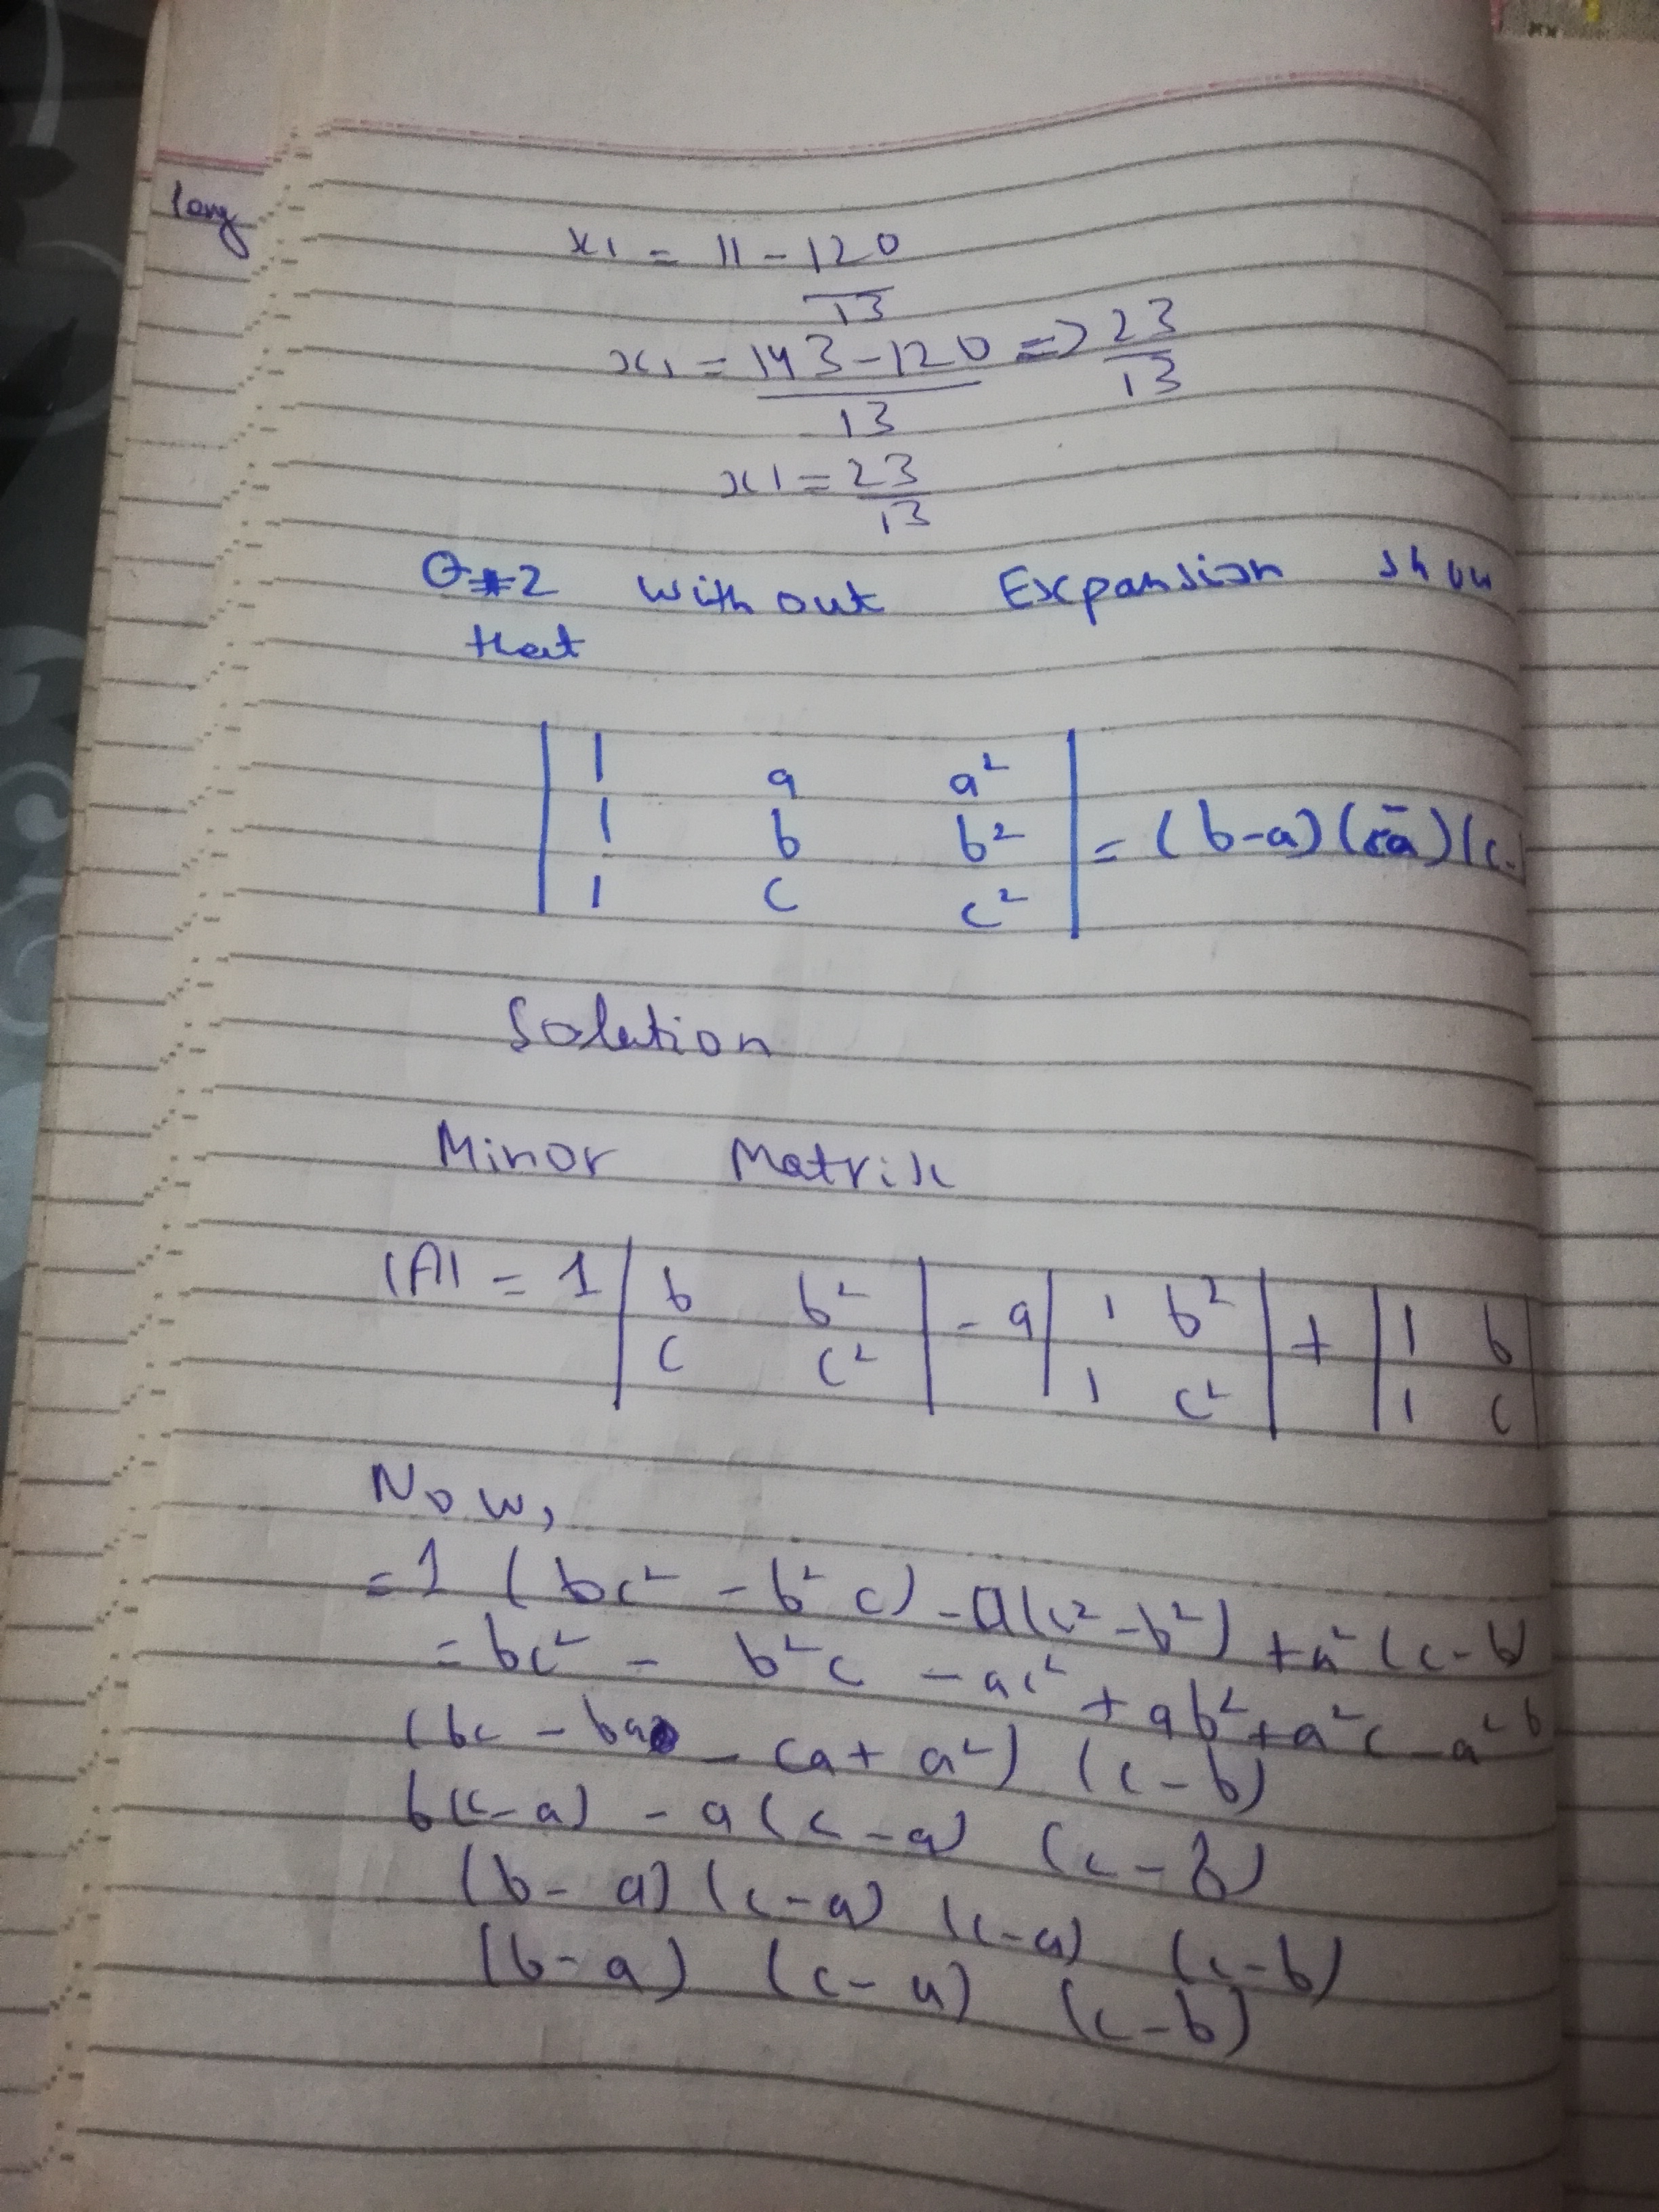 long
x1 = 11 - 120/13
x1 = 143-120/13 => 23/13
x1 = 23/13
Q#2 without Expansion show
that
| 1 a a² |
| 1 b b² | = (b-a)(c-a)(c-
| 1 c c² |
Solution
Minor Matrix
|A| = 1 | b b² | - a | 1 b² | + | 1 b |
| c c² | | 1 c² | | 1 c |
Now,
= 1 (bc² - b²c) - a(c² - b²) + a² (c-b)
= bc² - b²c - ac² + ab² + a²c - a²b
(bc - ba - ca + a²) (c-b)
b(c-a) - a(c-a) (c-b)
(b-a) (c-a) (c-a) (c-b)
(b-a) (c-a) (c-b)